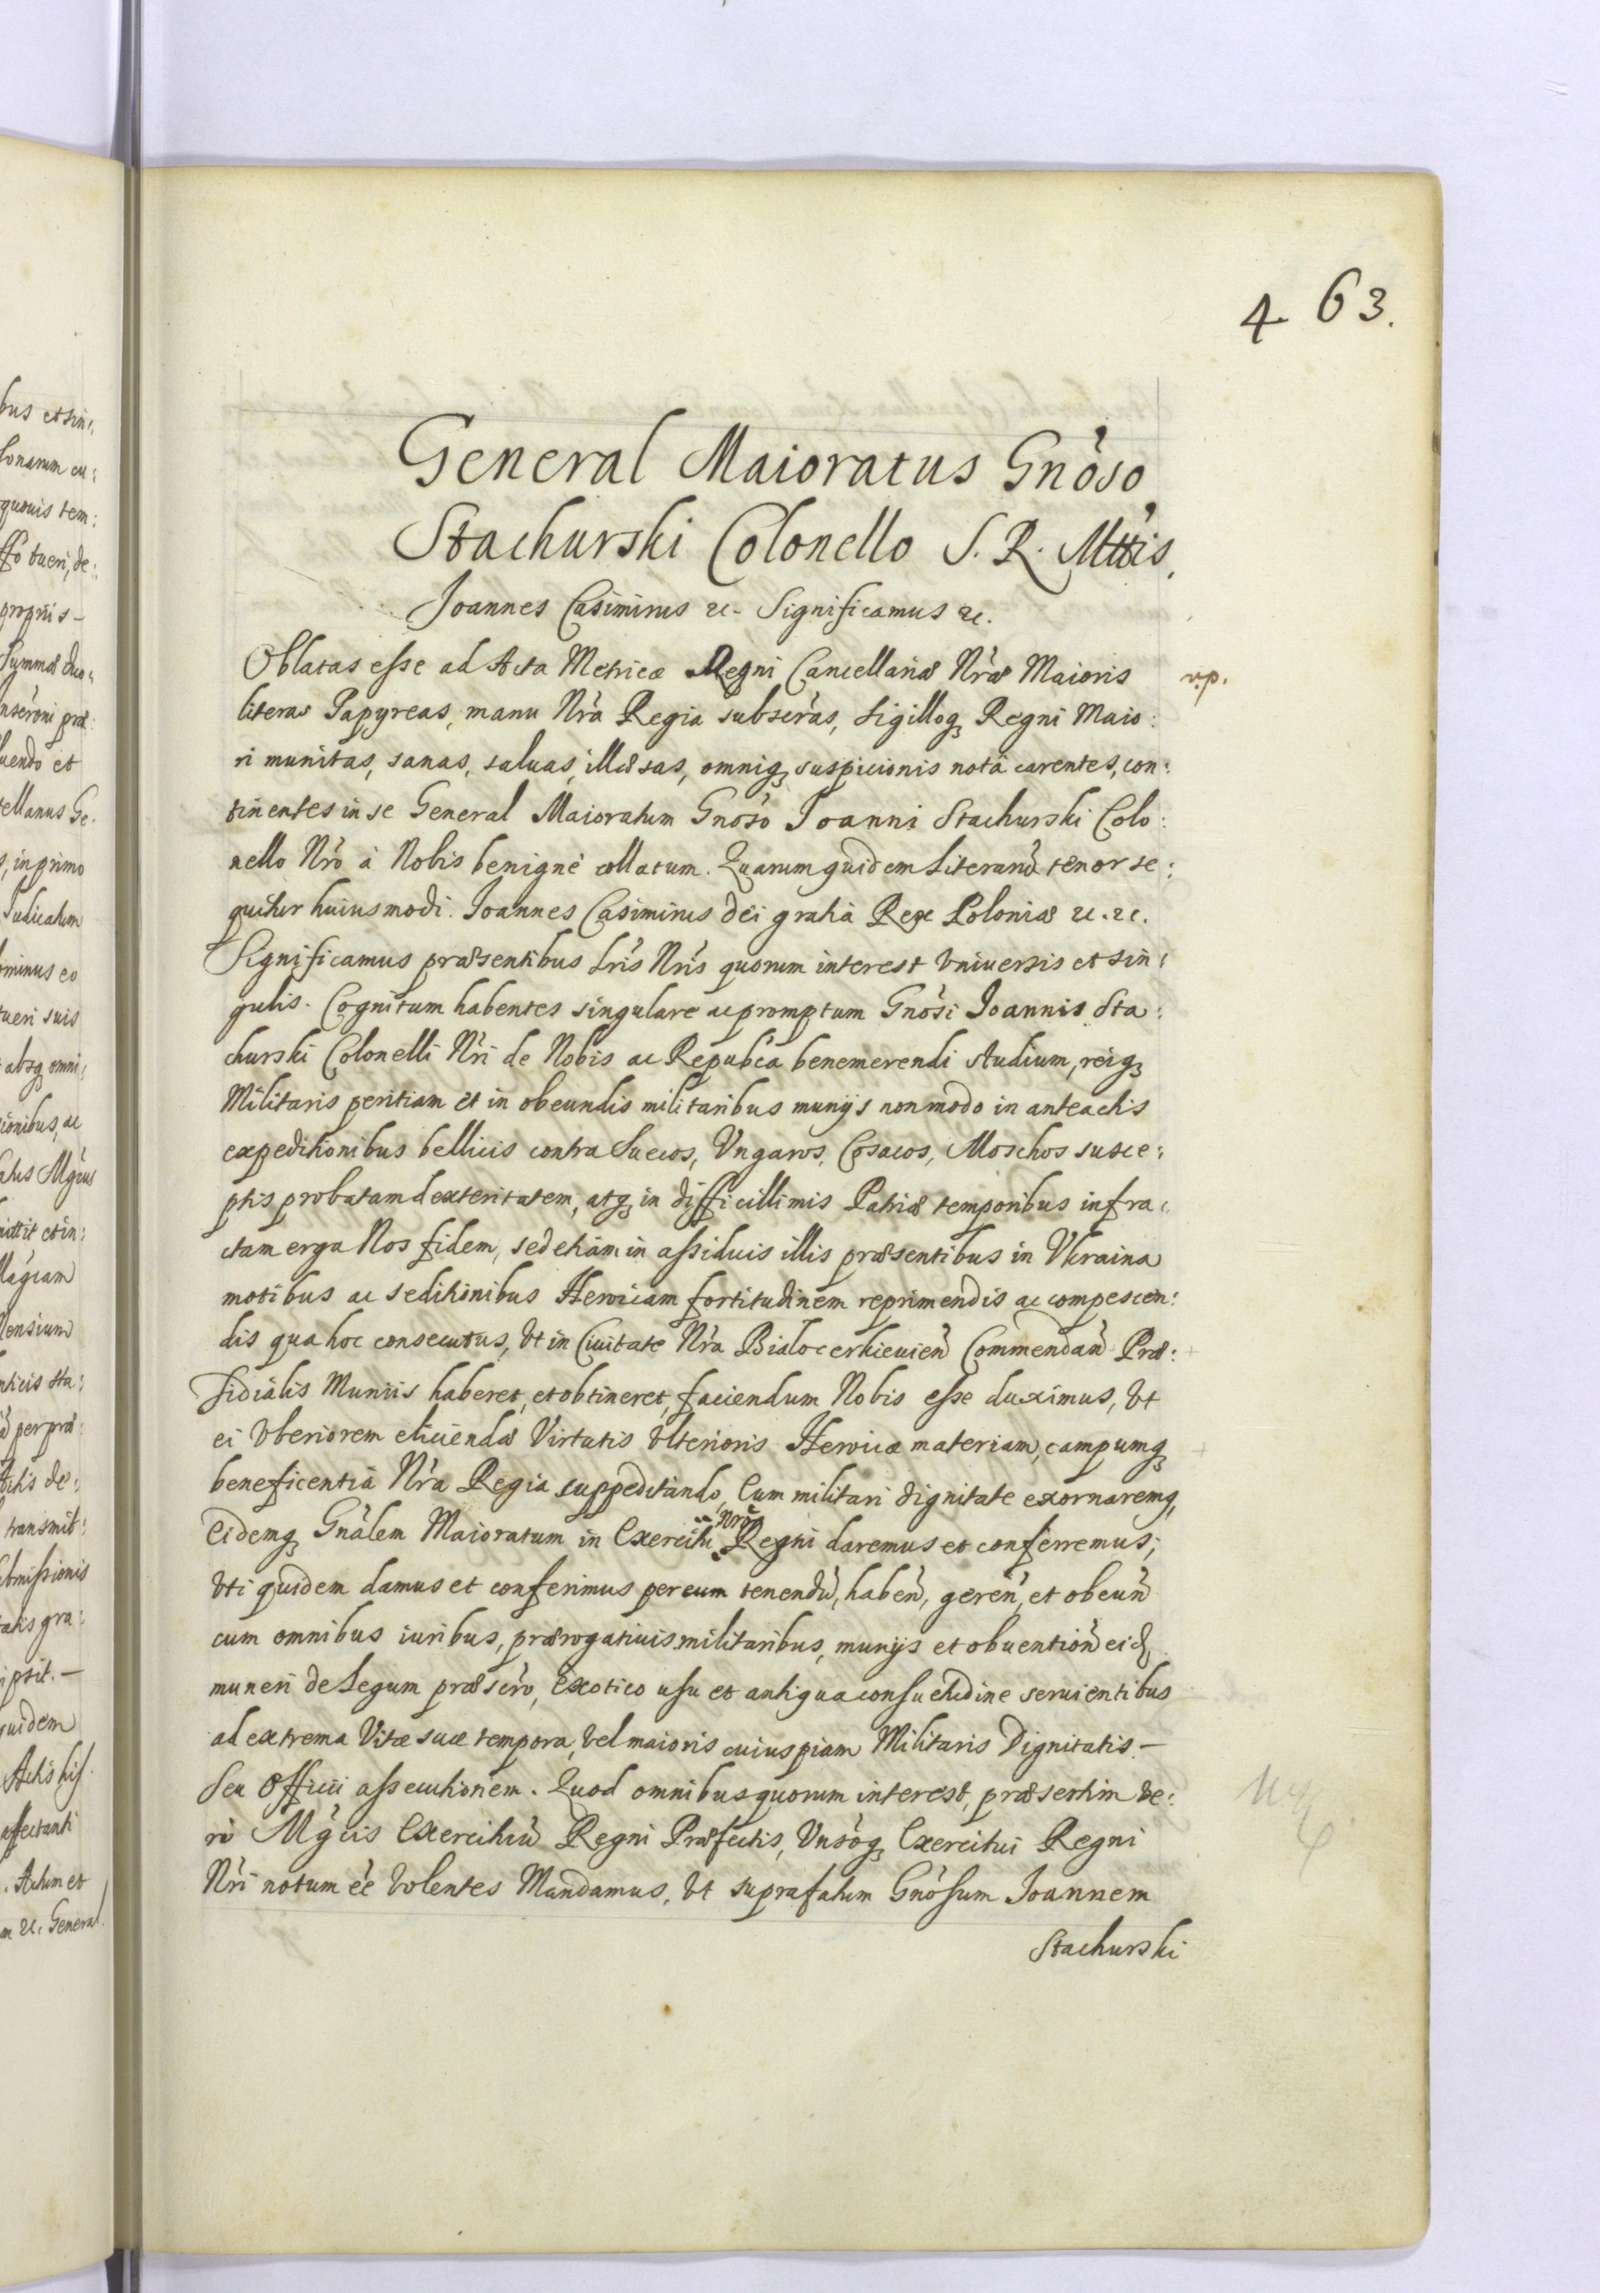 4 63.
General Maioratus Gnõso
Stachurski Colonello S. R. Mttis.
Joannes Casimirus &c. Significamus &c.
Oblatas esse ad Acta Metricæ Regni Cancellariæ Nr̃æ Maioris
v.p.
literas Papyreas, manu Nr̃a Regia subscr̃as, Sigilloq3 Regni Maio:
ri munitas, sanas, saluas, illæsas, omniq3 suspicionis notâ carentes, con:
tinentes in se General Maioratum Gnõso Joanni Stachurski Colo:
nello Nr̃o à Nobis benignè collatum. Quarum quidem Literarũ tenor se:
quitur huiusmodi. Joannes Casimirus Dei gratiâ Rex Poloniæ &c. &c.
Significamus præsentibus Lr̃is Nr̃is quorum interest vniuersis et sin:
gulis. Cognitum habentes singulare ac promptum Gnõsi Joannis Sta:
churski Colonelli Nr̃i de Nobis ac Repub̃ca benemerendi studium, reiq3
Militaris peritiam et in obeundis militaribus munijs non modo in anteactis
expeditionibus bellicis contra Suecos, Vngaros, Cosacos, Moschos susce:
ptis probatam dexteritatem, atq3 in difficillimis Patriæ temporibus infra:
ctam erga Nos fidem, sed etiam in assiduis illis præsentibus in Vkraina
motibus ac seditionibus Heroicam fortitudinem reprimendis ac compescen:
dis qua hoc consecutus, vt in Ciuitate Nr̃a Bialocerkieuieñ Commendañ Præ:
sidialis Muniis haberet, et obtineret, faciendum Nobis esse duximus, vt
ei vberiorem eliciendæ Virtutis vlterioris Heroicæ materiam, campumq3
beneficentiâ Nr̃a Regia suppeditando, Eum militari dignitate exornaremq3,
Eidemq3 Gnãlem Maioratum in Exercitu Nr̃o Regni daremus et conferremus;
vti quidem damus et conferimus per eum tenendũ, habeñ, gereñ, et obeuñ
cum omnibus iuribus, prærogatiuis militaribus, munijs et obuentioñ eid
muneri de Legum præscr̃o, Exotico usu et antiqua consuetudine seruientibus
ad extrema Vitæ suæ tempora, vel maioris cuiuspiam Militaris Dignitatis –
seu Officii assecutionem. Quod omnibus quorum interest, præsertim ve:
rò Mg̃cis Exercituũ Regni Præfectis, Vnsõq3 Exercitui Regni
Nr̃i notum eẽ volentes Mandamus, vt suprafatum Gnõsum Joannem
Stachurski